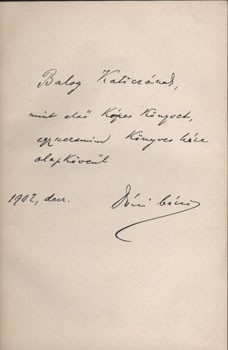 Balog Katiczának,
mint első Képes Könyvet,
egyszersmind Könyves háza
alapkövéül
1902, decz.